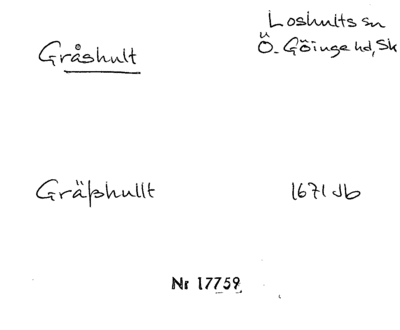 Loshults sn
Gråshult
Ö. Göinge hd, Sk
Gräßhullt
1671 Jb
Nr 17759